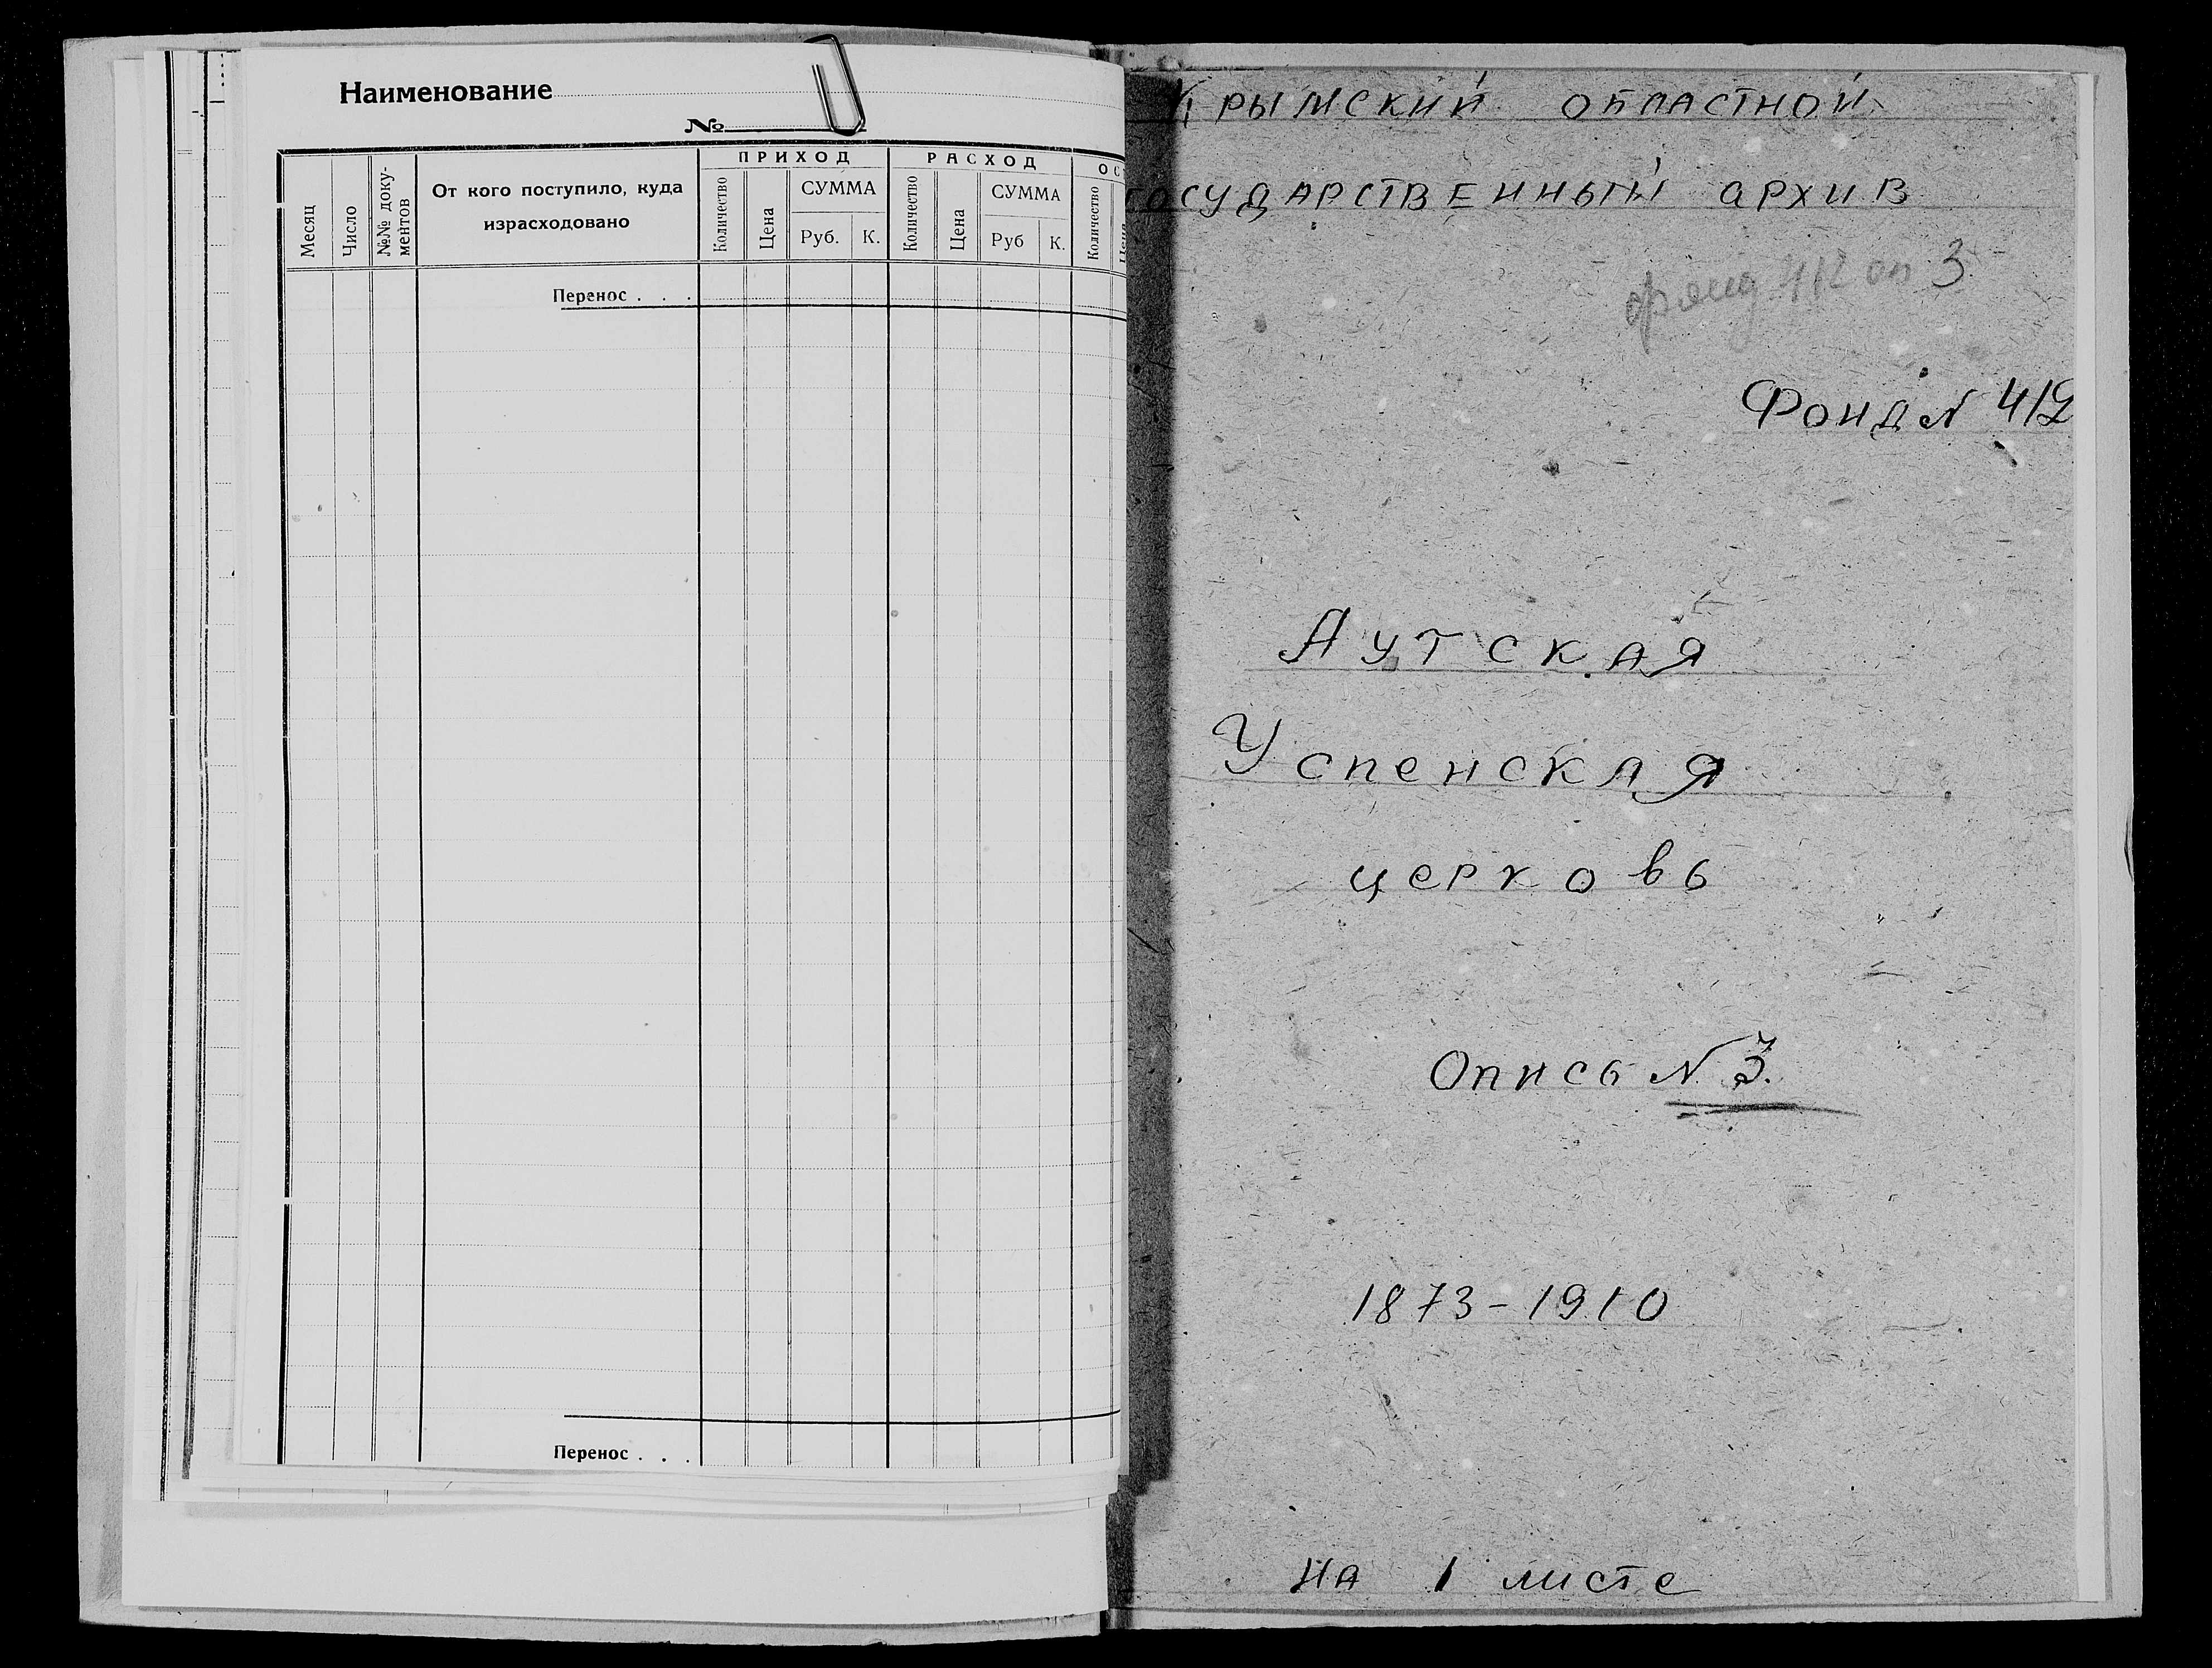 Наименование
№
Месяц
Число
№№ доку-
ментов
От кого поступило, куда
израсходовано
ПРИХОД
Количество
Цена
СУММА
Руб.
К.
РАСХОД
Количество
Цена
СУММА
Руб
К.
ОС
Количество
Цена
Перенос . . .
Перенос . . .
Крымский областной
государственный архив
фонд 412 оп 3
Фонд N 412
Аутская
Успенская
церковь
Опись N 3.
1873-1910
на 1 листе